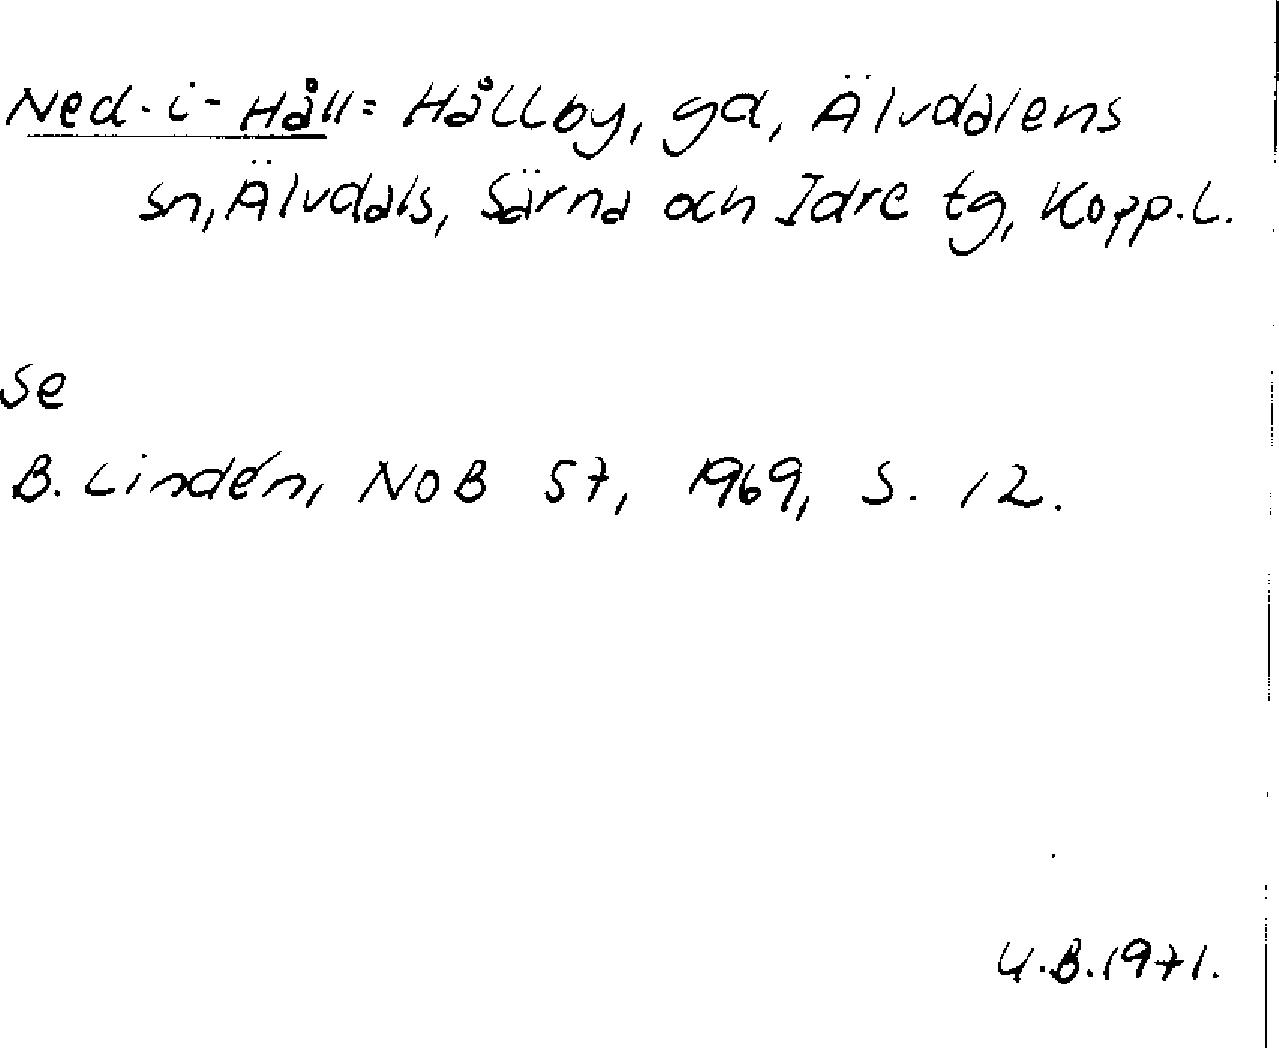 Ned-i-Håll = Hållby, gd, Älvdalens
sn, Älvdals, Särna och Idre tg, Kopp.l.
se
B. Lindén, NoB 57, 1969, s. 12.
U.B.1971.